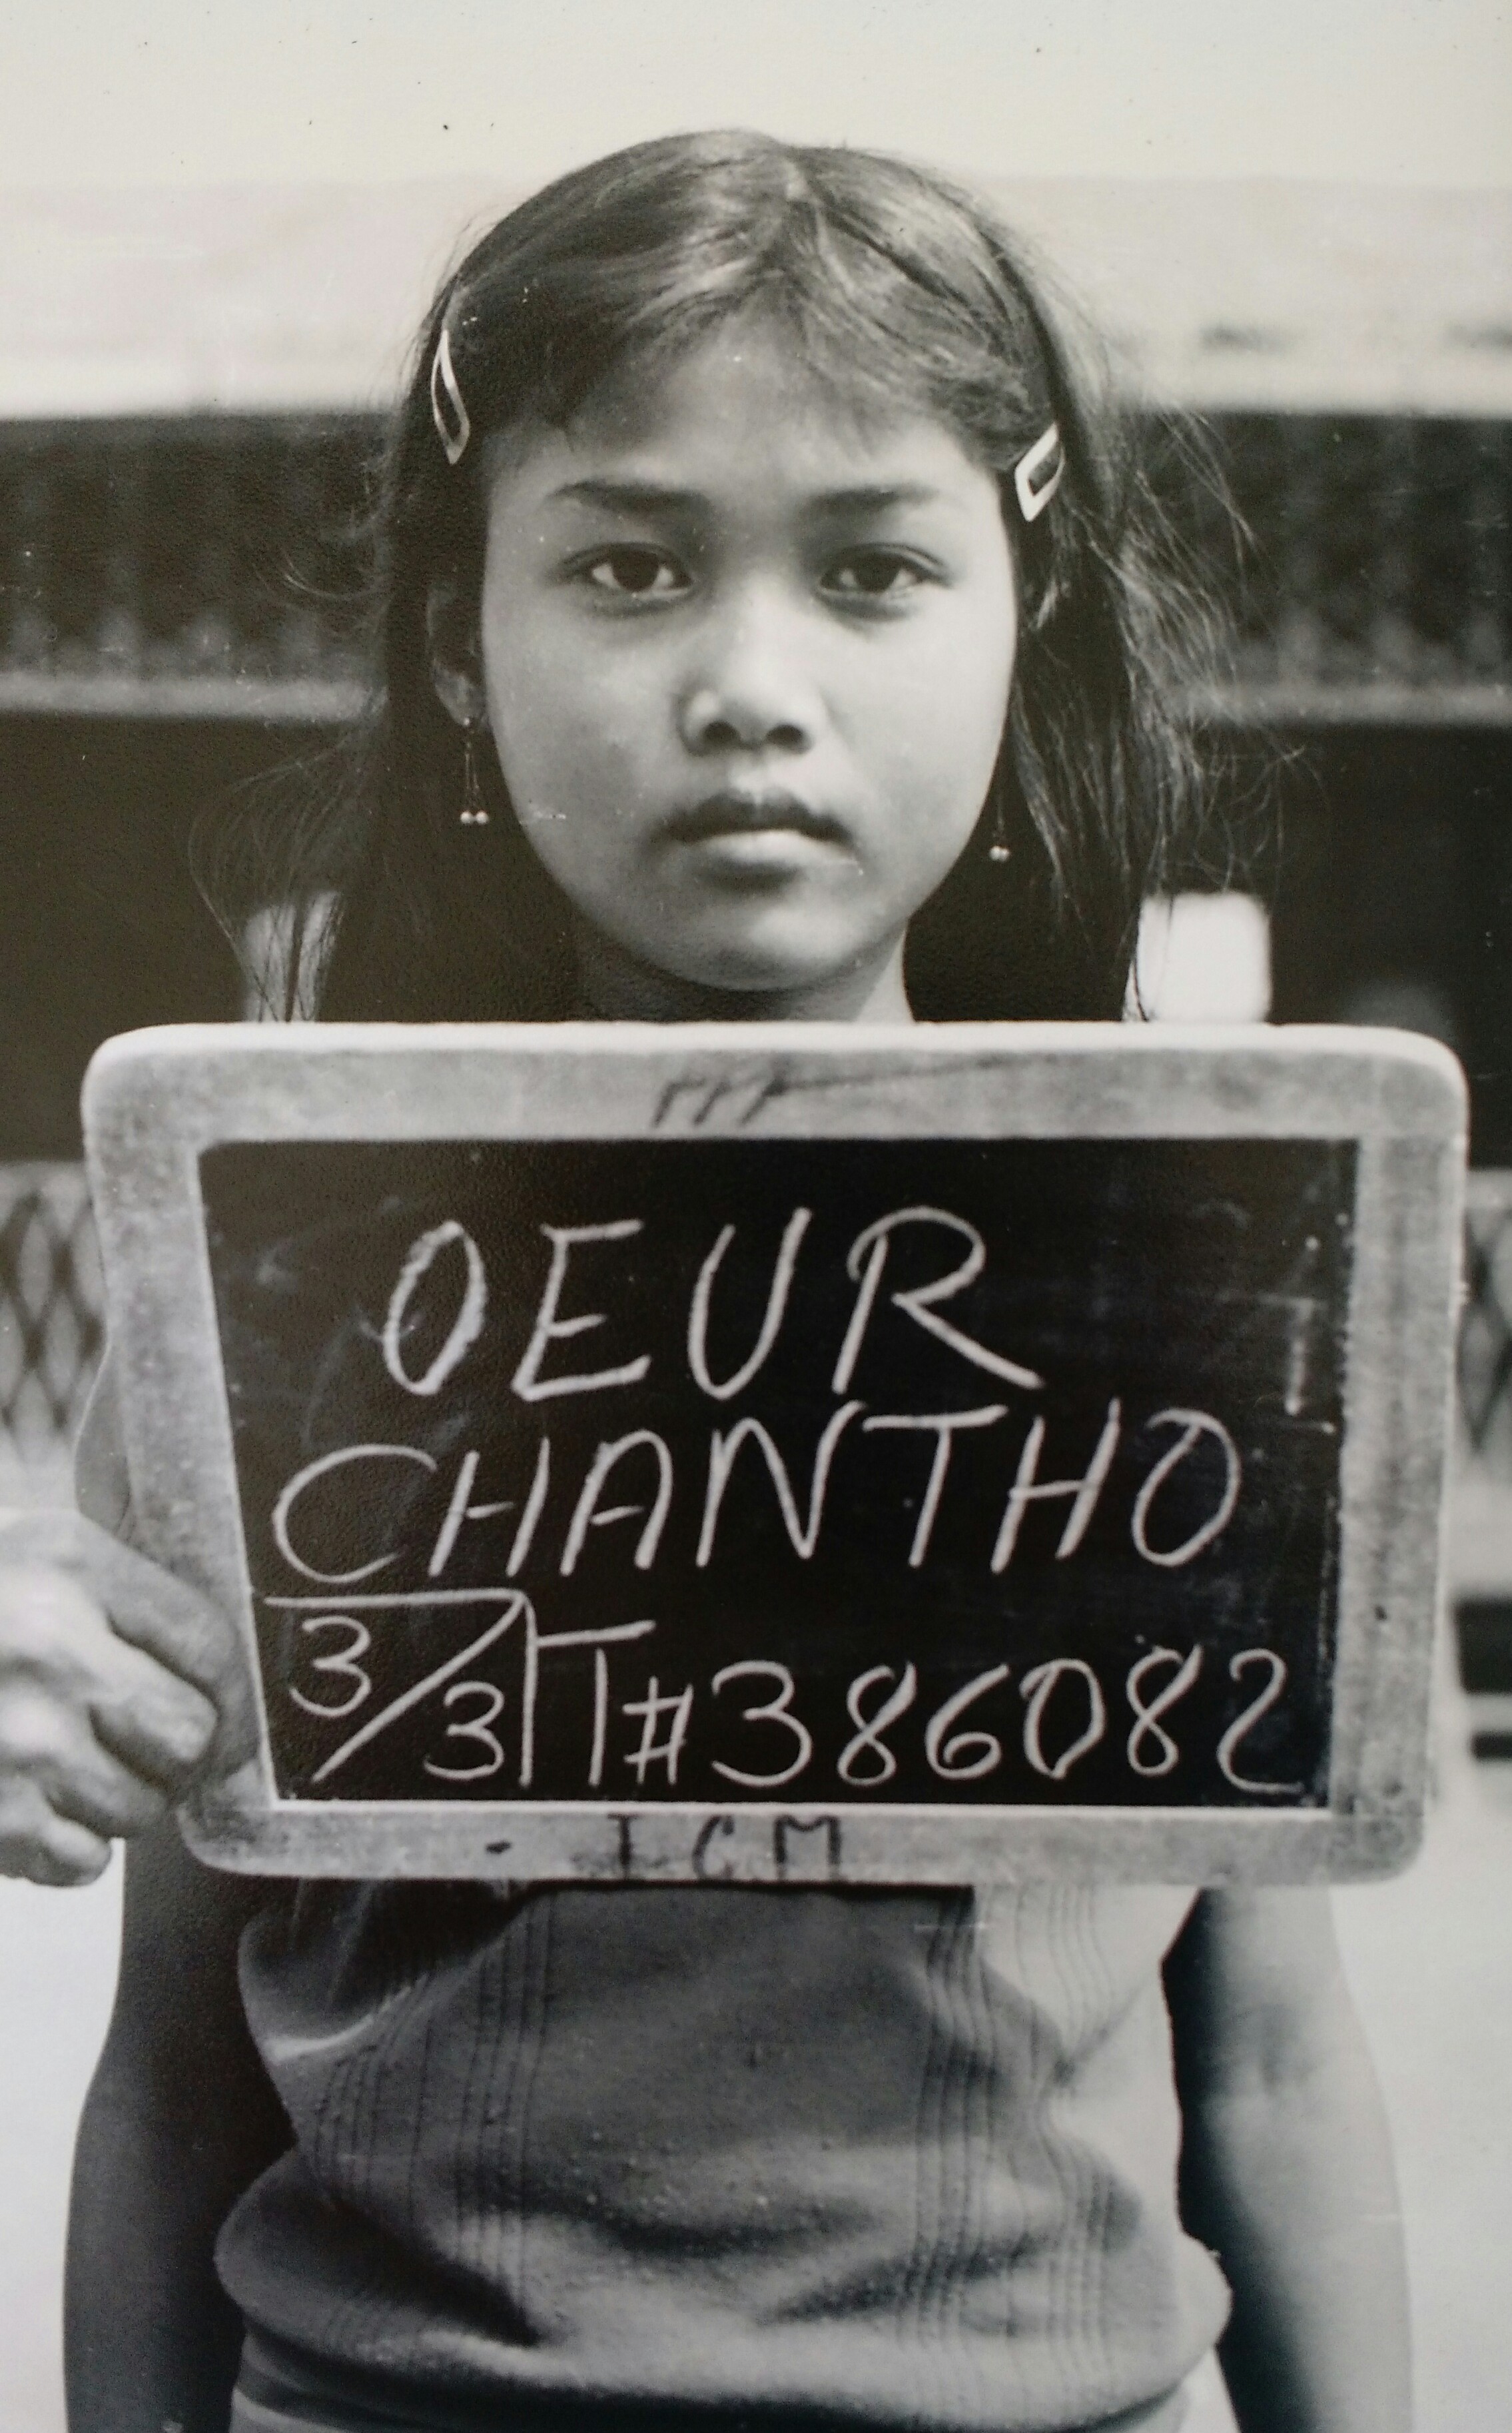 OEUR
CHANTHO
3/3 T#386082
ICM